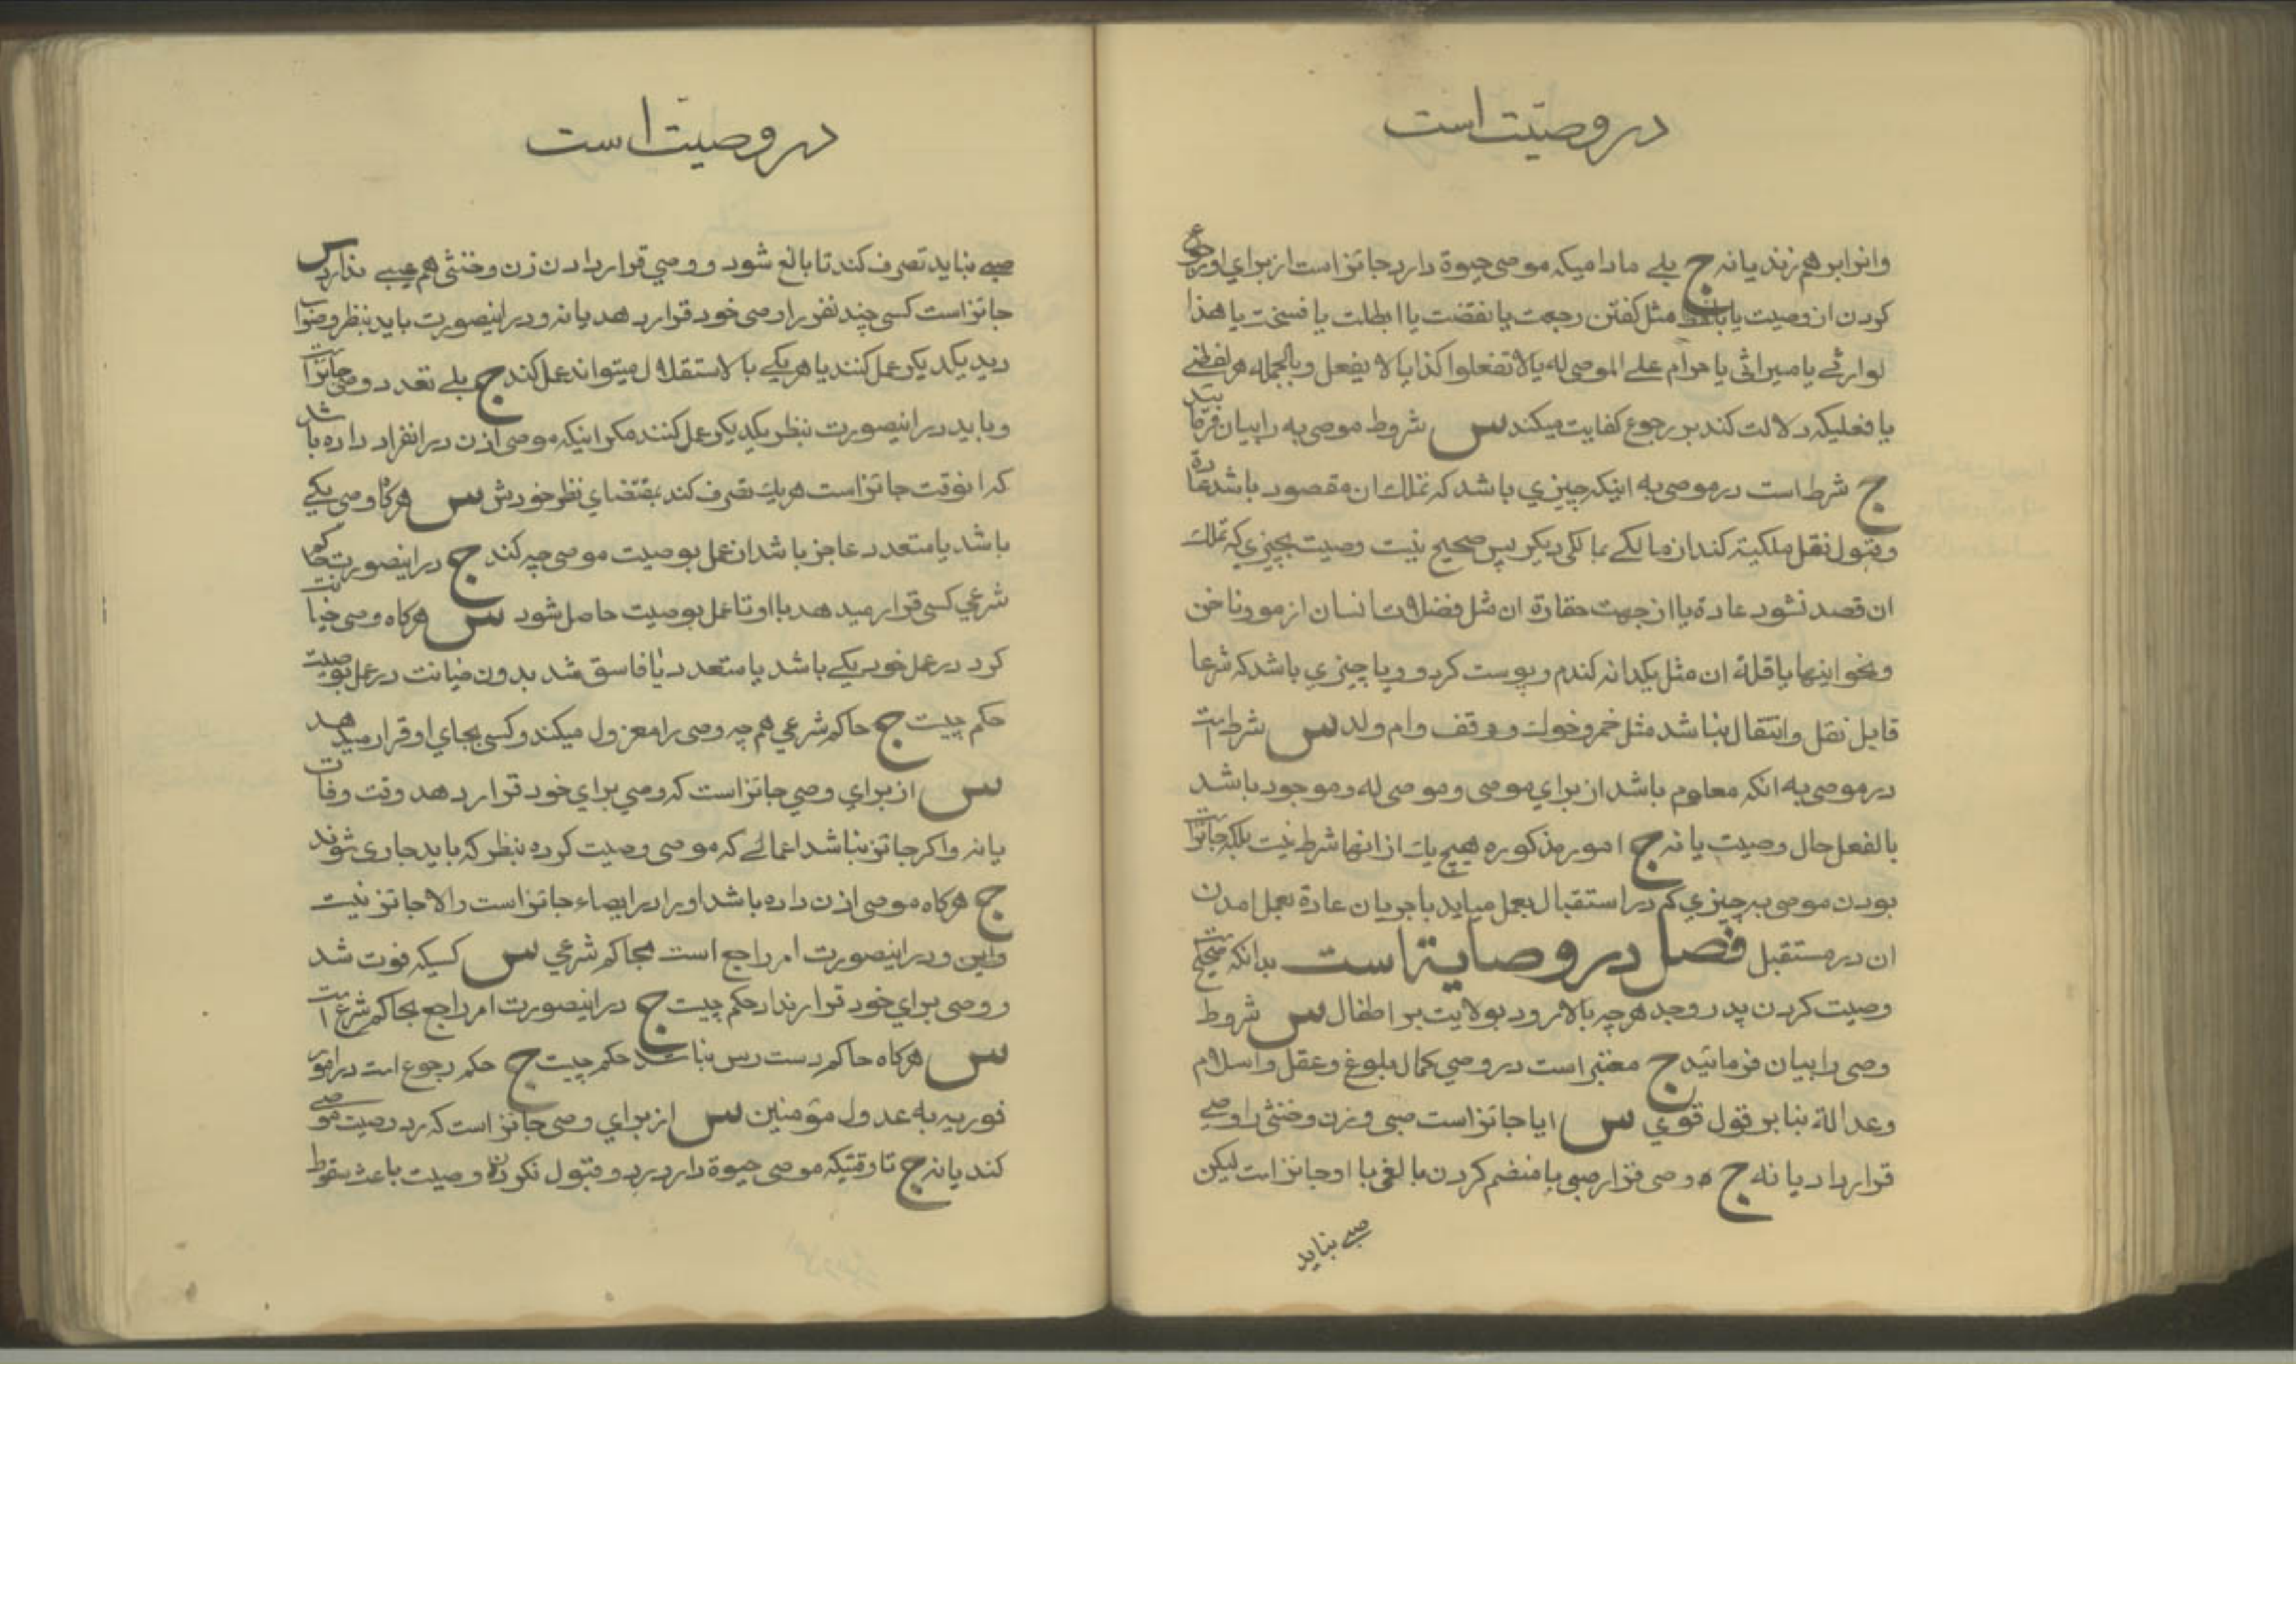 در وصیت است
وانرا برهم زند یا نه ج بلی مادامیکه موصی حیوة دارد جائز است از برای او رجوع
کردن از وصیت یا بلفظ مثل کفتن رجعت یا نقضت یا ابطلت یا فسخت یا هذا
لوارثی یا میراثی یا حرام علی الموصی له یا لا تفعلوا کذا یا لا یفعل و بالجمله هر لفظی
یا فعلیکه دلالت کند بر رجوع کفایت میکند س شروط موصی به را بیان فرمائید
ج شرط است در موصی به اینکه چیزی باشد که تملک ان مقصود باشد عادة
و قبول نقل ملکیة کند از مالکی بمالکی دیکر پس صحیح نیست وصیت بچیزی که تملک
ان قصد نشود عادة یا از جهت حقارة ان مثل فضلات انسان از مو و ناخن
و نحو اینها یا قلة ان مثل یکدانه کندم و پوست کردو و یا چیزی باشد که شرعا
قابل نقل و انتقال نباشد مثل خمر و خوک و وقف و ام ولد س شرط است
در موصی به انکه معلوم باشد از برای موصی و موصی له و موجود باشد
بالفعل حال وصیت یا نه ج امور مذکوره هیچ یک از انها شرط نیست بلکه جائز است
بودن موصی به چیزی که در استقبال بعمل میاید با جریان عادة بعمل امدن
ان در مستقبل فصل در وصایة است بدانکه صحیح است
وصیت کردن پدر و جد هرچه بالا رود بولایت بر اطفال س شروط
وصی را بیان فرمائید ج معتبر است در وصی کمال بلوغ و عقل و اسلام
و عدالة بنا بر قول قوی س ایا جائز است صبی و زن و خنثی را وصی
قرار داد یا نه ج وصی قرار صبی با منضم کردن بالغی با او جائز است لیکن
صبی نباید
در وصیت است
صبی نباید تصرف کند تا بالغ شود و وصی قرار دادن زن و خنثی هم عیبی ندارد س
جائز است کسی چند نفر را وصی خود قرار دهد یا نه و در اینصورت باید بنظر و صواب
دید یکدیکر عمل کنند یا هر یکی بالاستقلال میتواند عمل کند ج بلی تعدد وصی جائز است
و باید در اینصورت بنظر یکدیکر عمل کنند مکر اینکه موصی اذن در انفراد داده باشد
که انوقت جائز است هر یک تصرف کند بمقتضای نظر خودش س هرکاه وصی یکی
باشد یا متعدد عاجز باشد از عمل بوصیت موصی چه کند ج در اینصورت حاکم
شرعی کسی قرار میدهد با او تا عمل بوصیت حاصل شود س هرکاه وصی خیانت
کرد در عمل خود یکی باشد یا متعدد یا فاسق شد بدون خیانت در عمل بوصیت
حکم چیست ج حاکم شرعی هم چه وصی را معزول میکند و کسی بجای او قرار میدهد
س از برای وصی جائز است که وصی برای خود قرار دهد وقت وفات
یا نه و اکر جائز نباشد اعمالی که موصی وصیت کرده بنظر که باید جاری شوند
ج هرکاه موصی اذن داده باشد او را در ایصاء جائز است والا جائز نیست
و در اینصورت امر راجع است بحاکم شرعی س کسیکه فوت شد
و وصی برای خود قرار نداد حکم چیست ج در اینصورت امر راجع بحاکم شرع است
س هرکاه حاکم دست رس نباشد حکم چیست ج حکم رجوع است در امور
فوریه به عدول مؤمنین س از برای وصی جائز است که رد وصیت موصی
کند یا نه ج تا وقتیکه موصی حیوة دارد رد و قبول نکردن وصیت باعث سقوط